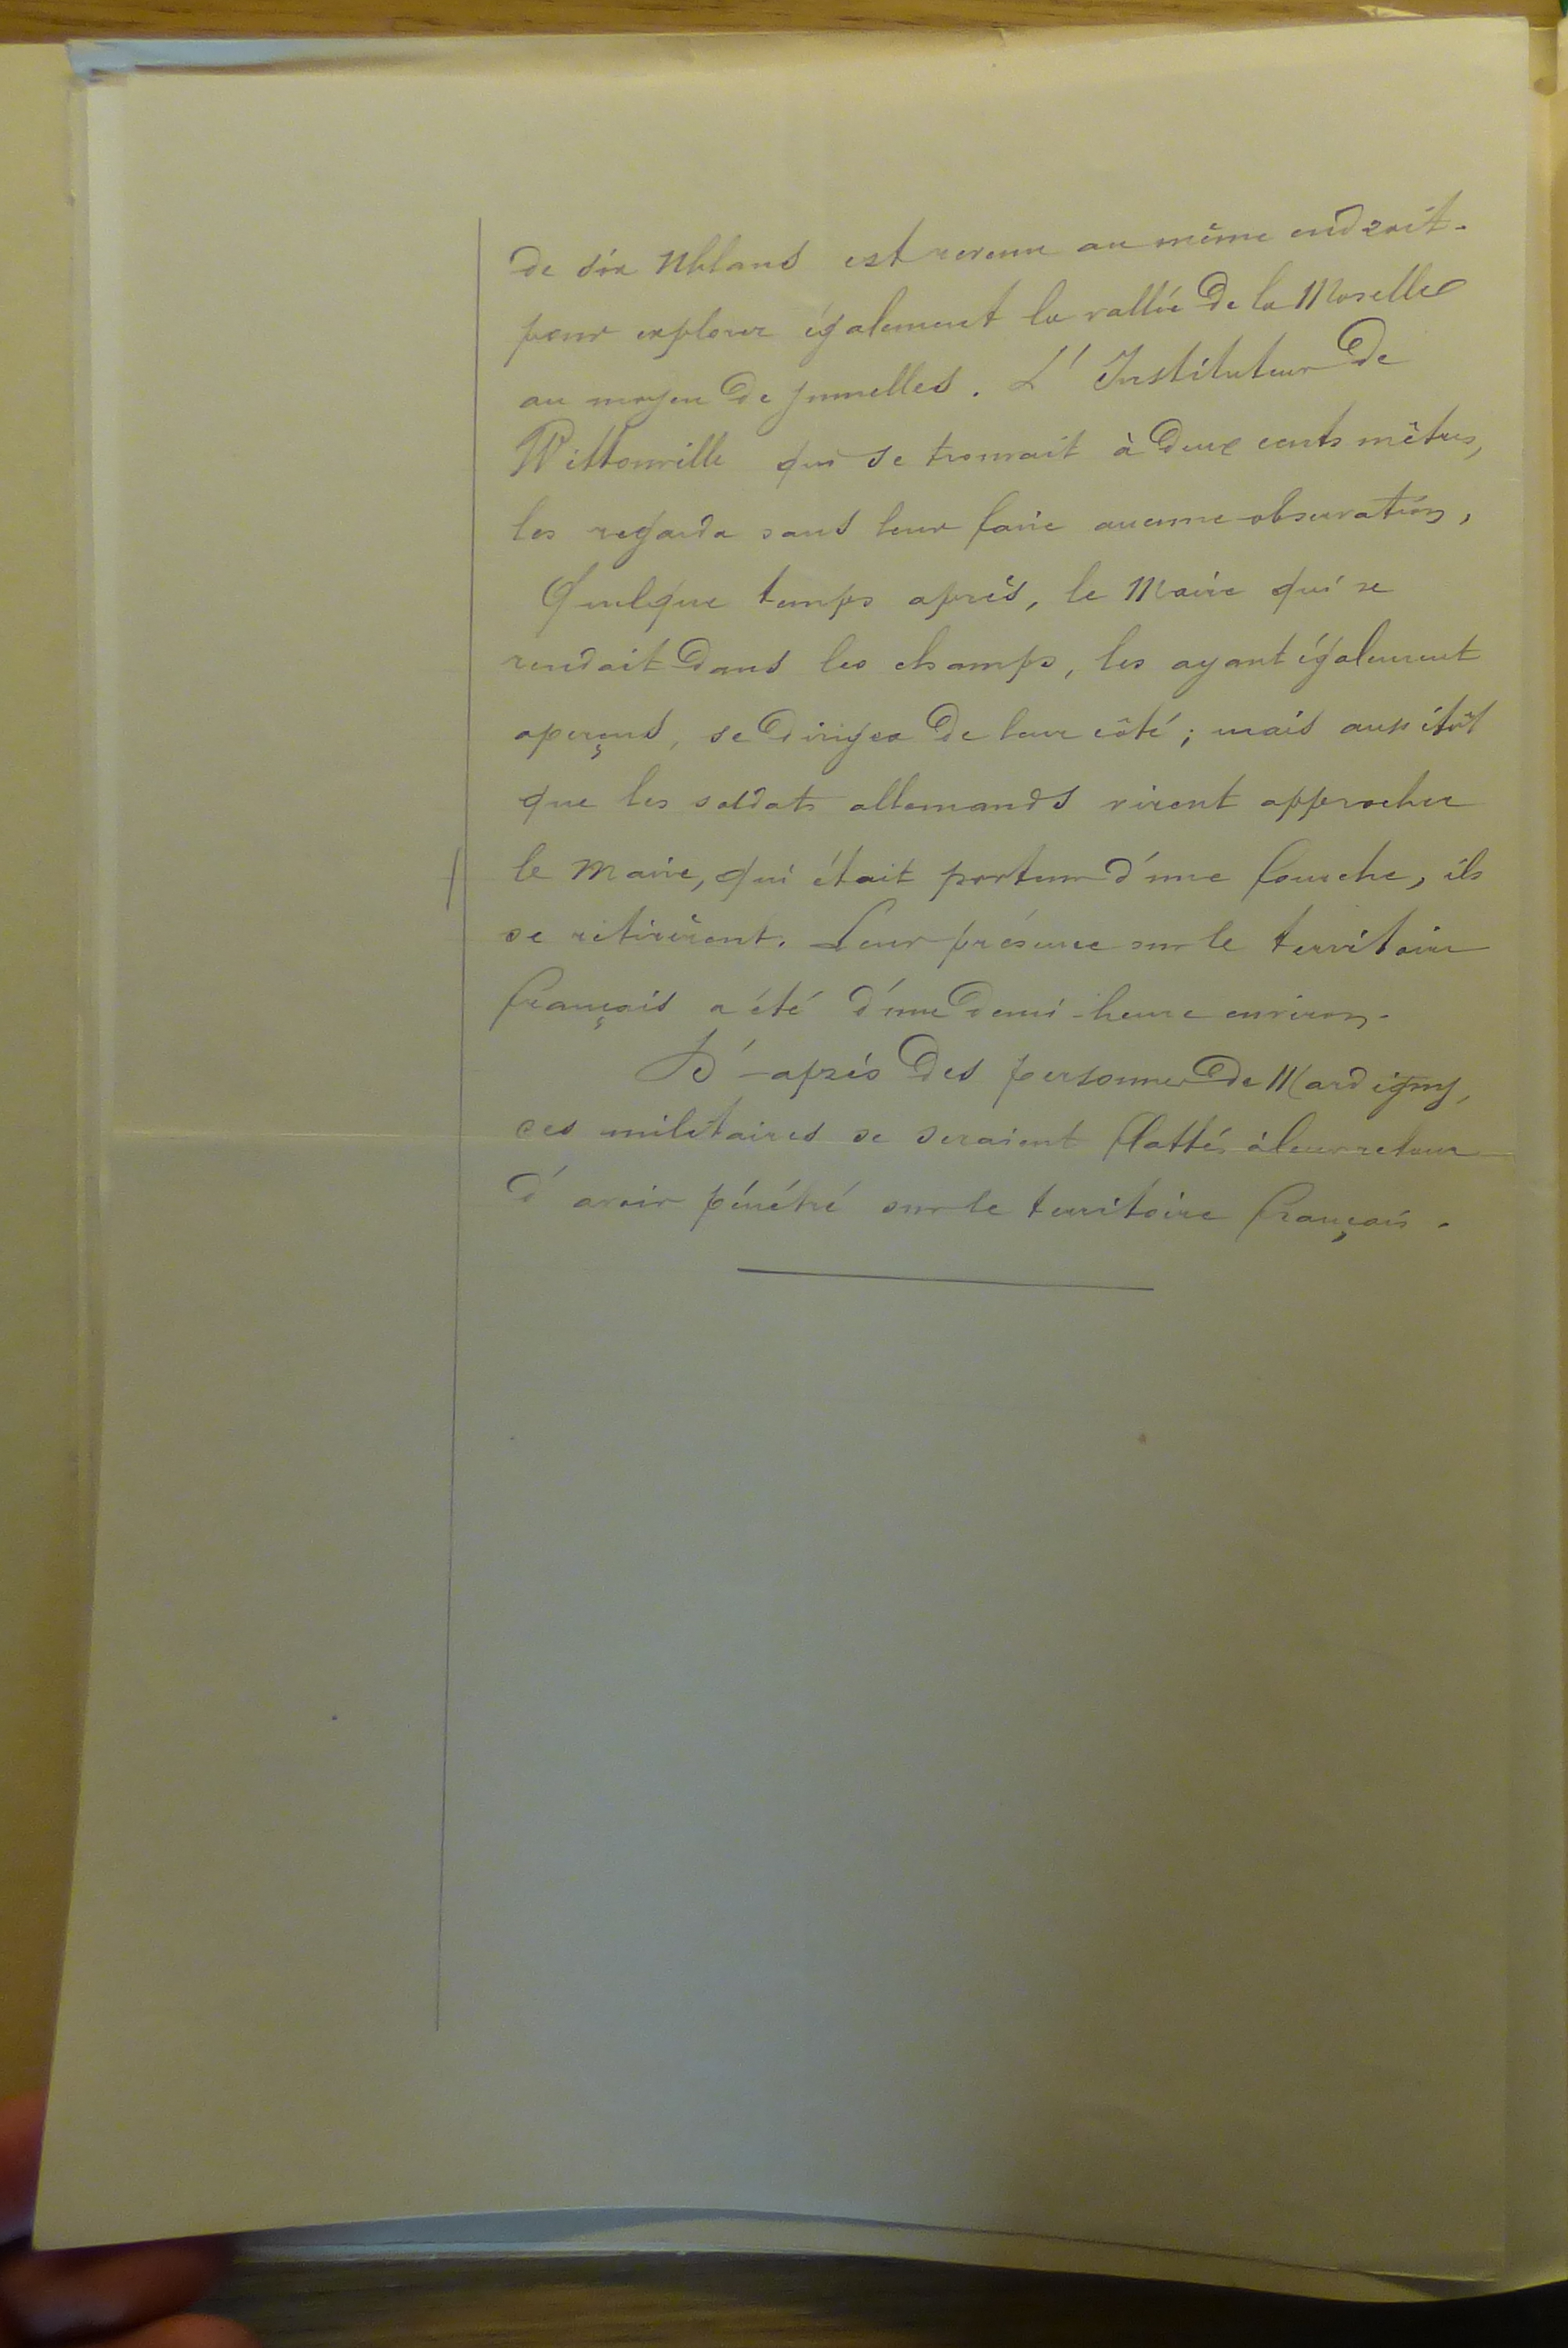 de six Uhlans est revenu au même endroit.
pour explorer également la vallée de la Moselle
au moyen de jumelles. L'Instituteur de
Vittonville qui se trouvait à deux cents mètres,
les regarda sans leur faire aucune observation,
Quelque temps après, le Maire qui se
rendait dans les champs, les ayant également
aperçus, se dirigea de leur côté ; mais aussitôt
que les soldats allemands virent approcher
le Maire, qui était porteur d'une fourche, ils
se retirèrent. Leur présence sur le territoire
français a été d'une demi-heure environ.
D'après des personnes de Mardigny,
ces militaires se seraient flattés à leur retour
d'avoir pénétré sur le territoire français.